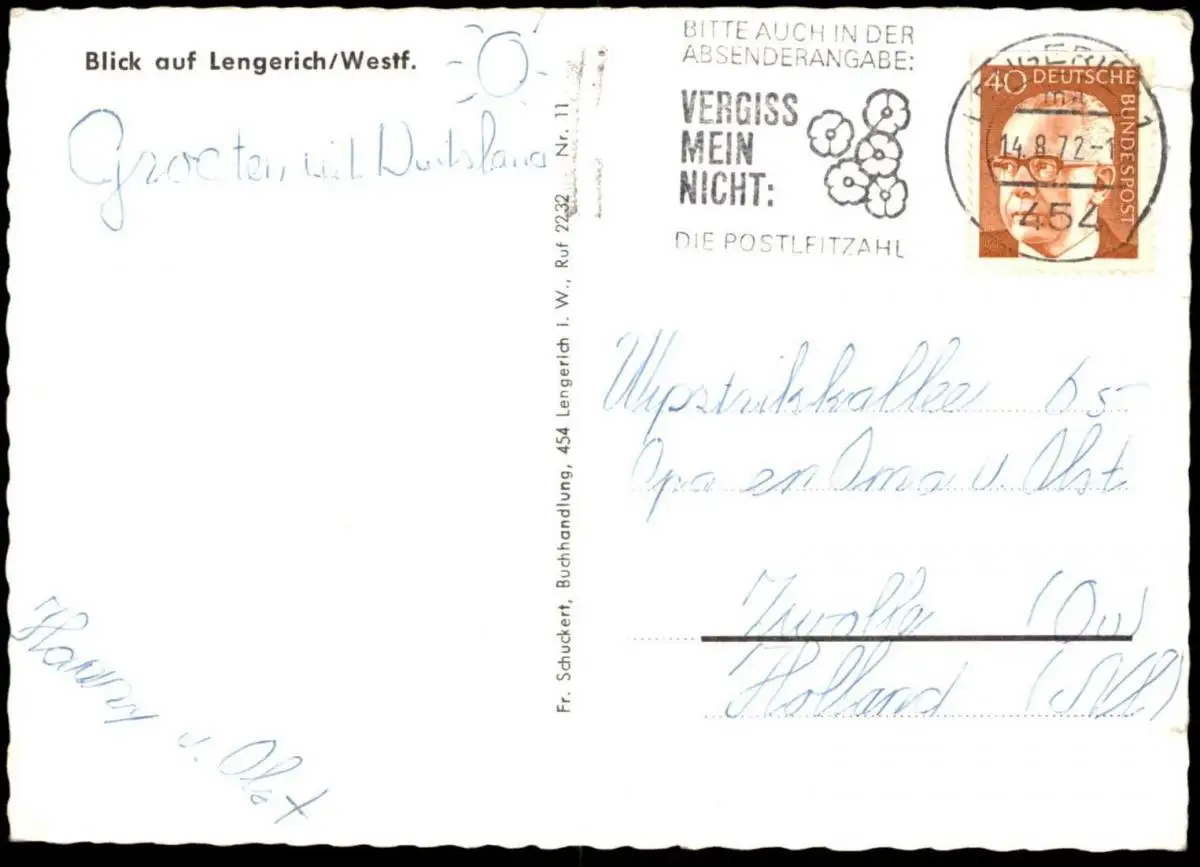 Blick auf Lengerich/Westf.
Grocten, uit Duitsland
Harry v. Olst
Fr. Schuckert, Buchhandlung, 454 Lengerich i. W., Ruf 2232 Nr. 11
BITTE AUCH IN DER
ABSENDERANGABE:
VERGISS
MEIN
NICHT:
DIE POSTLEITZAHL
LENGERICH
14.8.72-1
454
1
40 DEUTSCHE
BUNDESPOST
Wypstrikkallee 65
Opa en Oma v. Olst
Zwolle (Ov)
Holland (NH)